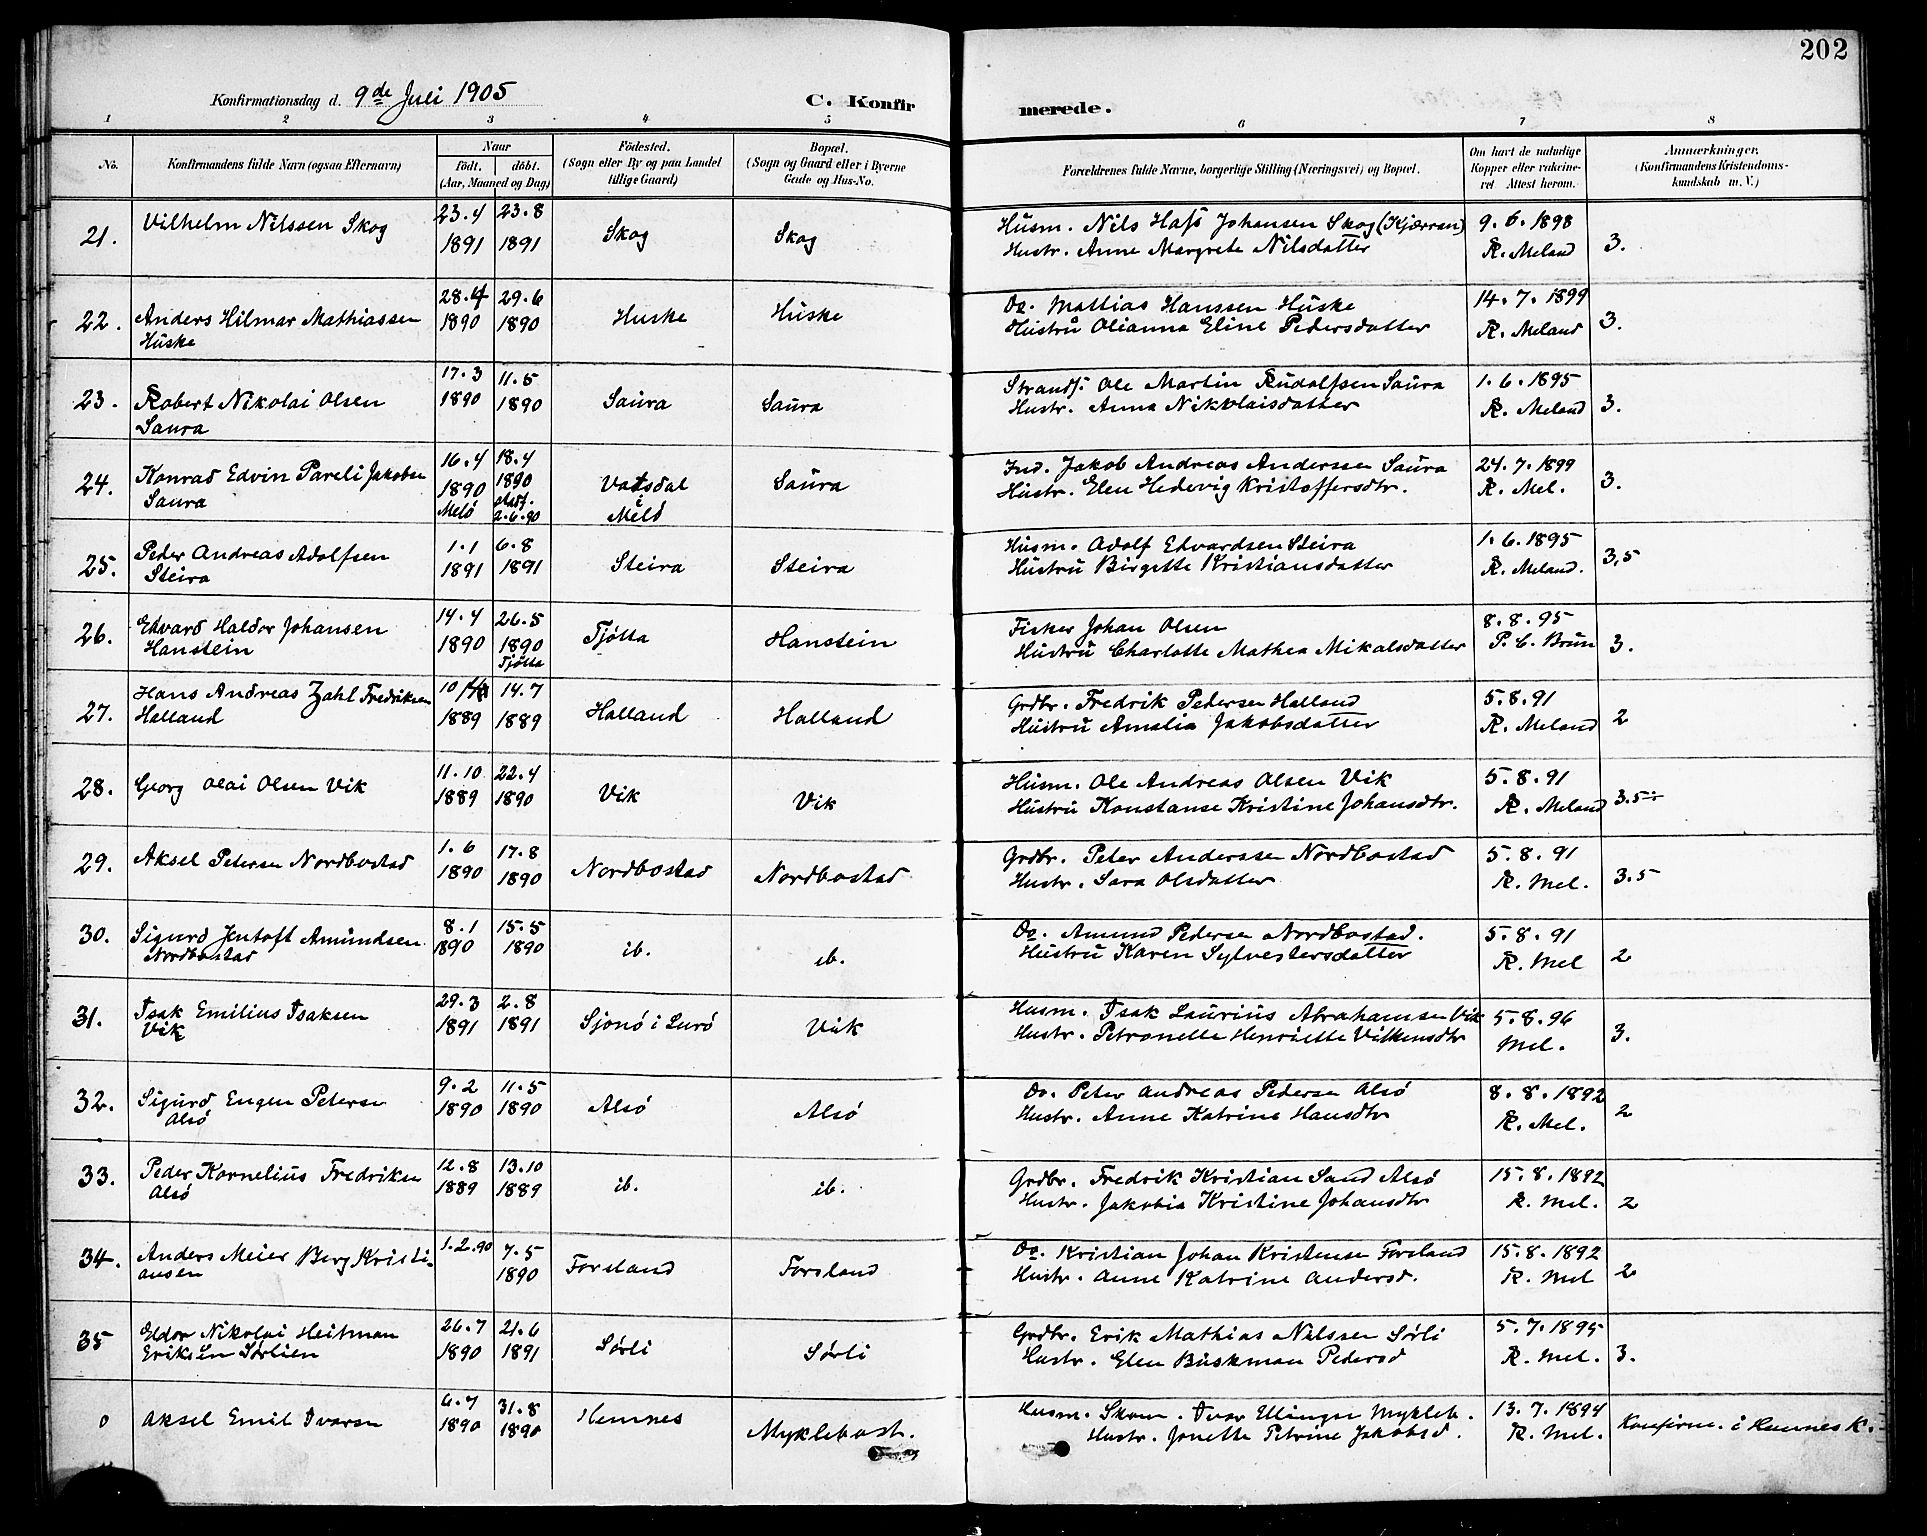 202
Konfirmationsdag d. 9de Juli 1905
C. Konfirmerede.
1 2 3 4 5 6 7 8
No. Konfirmandens fulde Navn (ogsaa Efternavn) Naar født. døbt. (Aar, Maaned og Dag) Fødested. (Sogn eller By og paa Landet tillige Gaard) Bopæl. (Sogn og Gaard eller i Byerne Gade og Hus-No. Forældrenes fulde Navne, borgerlige Stilling (Næringsvei) og Bopæl. Om havt de naturlige Kopper eller vakcineret. Attest herom. Anmærkninger. (Konfirmandens Kristendomskundskab m. V.)
21. Vilhelm Nilssen Skog 23.4 1891 23.8 1891 Skog Skog Husm. Nils Johansen Skog (Kjærran) 9.6.1898 3.
Hustr. Anne Margrete Nilsdatter R. Meland
22. Anders Hilmar Mathiassen 28.4 1890 29.6 1890 Huske Huske Do. Mattias Hanssen Huske 14.7.1899 3.
Huske Hustru Olianna Eline Pedersdatter R. Meland
23. Robert Nikolai Olsen 17.3 1890 11.5 1890 Saura Saura Strands. Ole Martin Rudolfsen Saura 1.6.1895 3.
Saura Hustr. Anna Nikolaisdatter R. Meland
24. Konrad Edvin Pareli Jakobsen 16.4 1890 Melø 18.4 1890 stadf. 2.6.90 Vatsdal i Melø Saura Ind. Jakob Andreas Anderssen Saura 24.7.1899 3.
Saura Hustr. Elen Hedevig Kristoffersdtr. R. Mel.
25. Peder Andreas Adolfsen 1.1 1891 6.8 1891 Steira Steira Husm. Adolf Edvardsen Steira 1.6.1895 3,5
Steira Hustru Birgette Kristiansdatter R. Meland.
26. Edvard Haldor Johansen 14.4 1890 26.5 1890 Tjøtta Tjøtta Hanstein Fisker Johan Olsen 8.8.95 3.
Hanstein Hustru Charlotte Mathea Mikalsdatter P. C. Brun
27. Hans Andreas Zahl Fredriksen 10/ 1889 14.7 1889 Halland Halland Grdbr. Fredrik Pedersen Halland 5.8.91 2
Halland Hustru Amalia Jakobsdatter R. Meland
28. Georg Olai Olsen Vik 11.10 1889 22.4 1890 Vik Vik Husm. Ole Andreas Olsen Vik 5.8.91 3.5
Hustru Konstanse Kristine Johansdtr. R. Meland
29. Aksel Petersen Nordbostad 1.6 1890 17.8 1890 Nordbostad Nordbostad Grdbr. Peter Anderssen Nordbostad 5.8.91 3.5
Hustr. Sara Olsdatter R. Mel.
30. Sigurd Jentoft Amundsen 8.1 1890 15.5 1890 ib. ib. Do. Amund Pedersen Nordbostad. 5.8.91 2
Nordbostad Hustru Karen Sylvestersdatter R. Mel
31. Isak Emilius Isaksen 29.3 1891 2.8 1891 Sjonø i Lurø Vik Husm. Isak Laurius Abrahamsen Vik 5.8.96 3.
Vik Hustr. Petronelle Henriette Vilkensdtr Mel.
32. Sigurd Eugen Petersen 9.2 1890 11.5 1890 Alsø Alsø Do. Peter Andreas Pedersen Alsø 8.8.1892 2
Alsø Hustr. Anne Katrine Hansdtr R. Mel.
33. Peder Kornelius Fredriksen 12.8 1889 13.10 1889 ib. ib. Grdbr. Fredrik Kristian Sand Alsø 15.8.1892 2
Alsø Hustr. Jakobia Kristine Johansdtr R. Mel.
34. Anders Meier Berg Kristi- 1.2.90 7.5 1890 Forsland Forsland Do. Kristian Johan Kristensen Forsland 15.8.1892 2
ansen Hustr. Anne Katrine Andersd. R. Mel
35 Eldor Nikolai Heitman 26.7 1890 21.6 1891 Sørli Sørli Grdbr. Erik Mathias Nilssen Sørli 5.7.1895 3.
Eriksen Sørlien Hustr. Elen Buskman Pedersd R. Mel.
0 Aksel Emil Ivarsen 6.7 1890 31.8 1890 Hemnes Myklebost. Husm. Skom. Ivar Ellingsen Mykleb. 13.7.1894 Konfirm. i Hemnes K.
Hustr. Jonette Petrine Jakobsd. R. Mel.